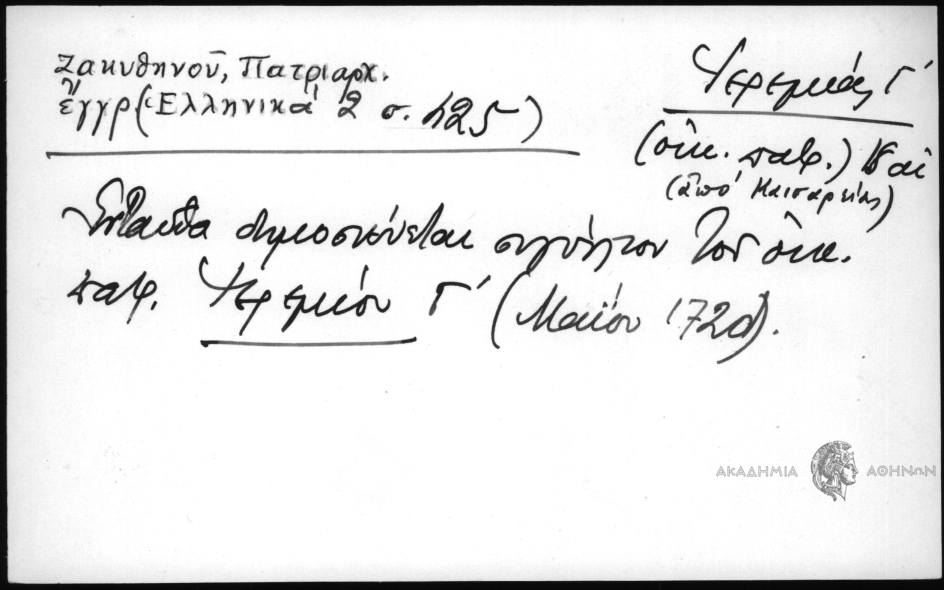 Ζακυθηνοῦ, Πατριαρχ.
ἔγγρ (Ἑλληνικά 2 σ. 425)
Ἱερεμίας Γ΄
(οἰκ. πατρ.) 18 αἰ
(ἀπό Καισαρείας)
Ἐνταῦθα δημοσιεύεται σιγίλλιον τοῦ οἰκ.
πατρ. Ἱερεμίου Γ΄ (Μαΐου
ΑΚΑΔΗΜΙΑ ΑΘΗΝΩΝ